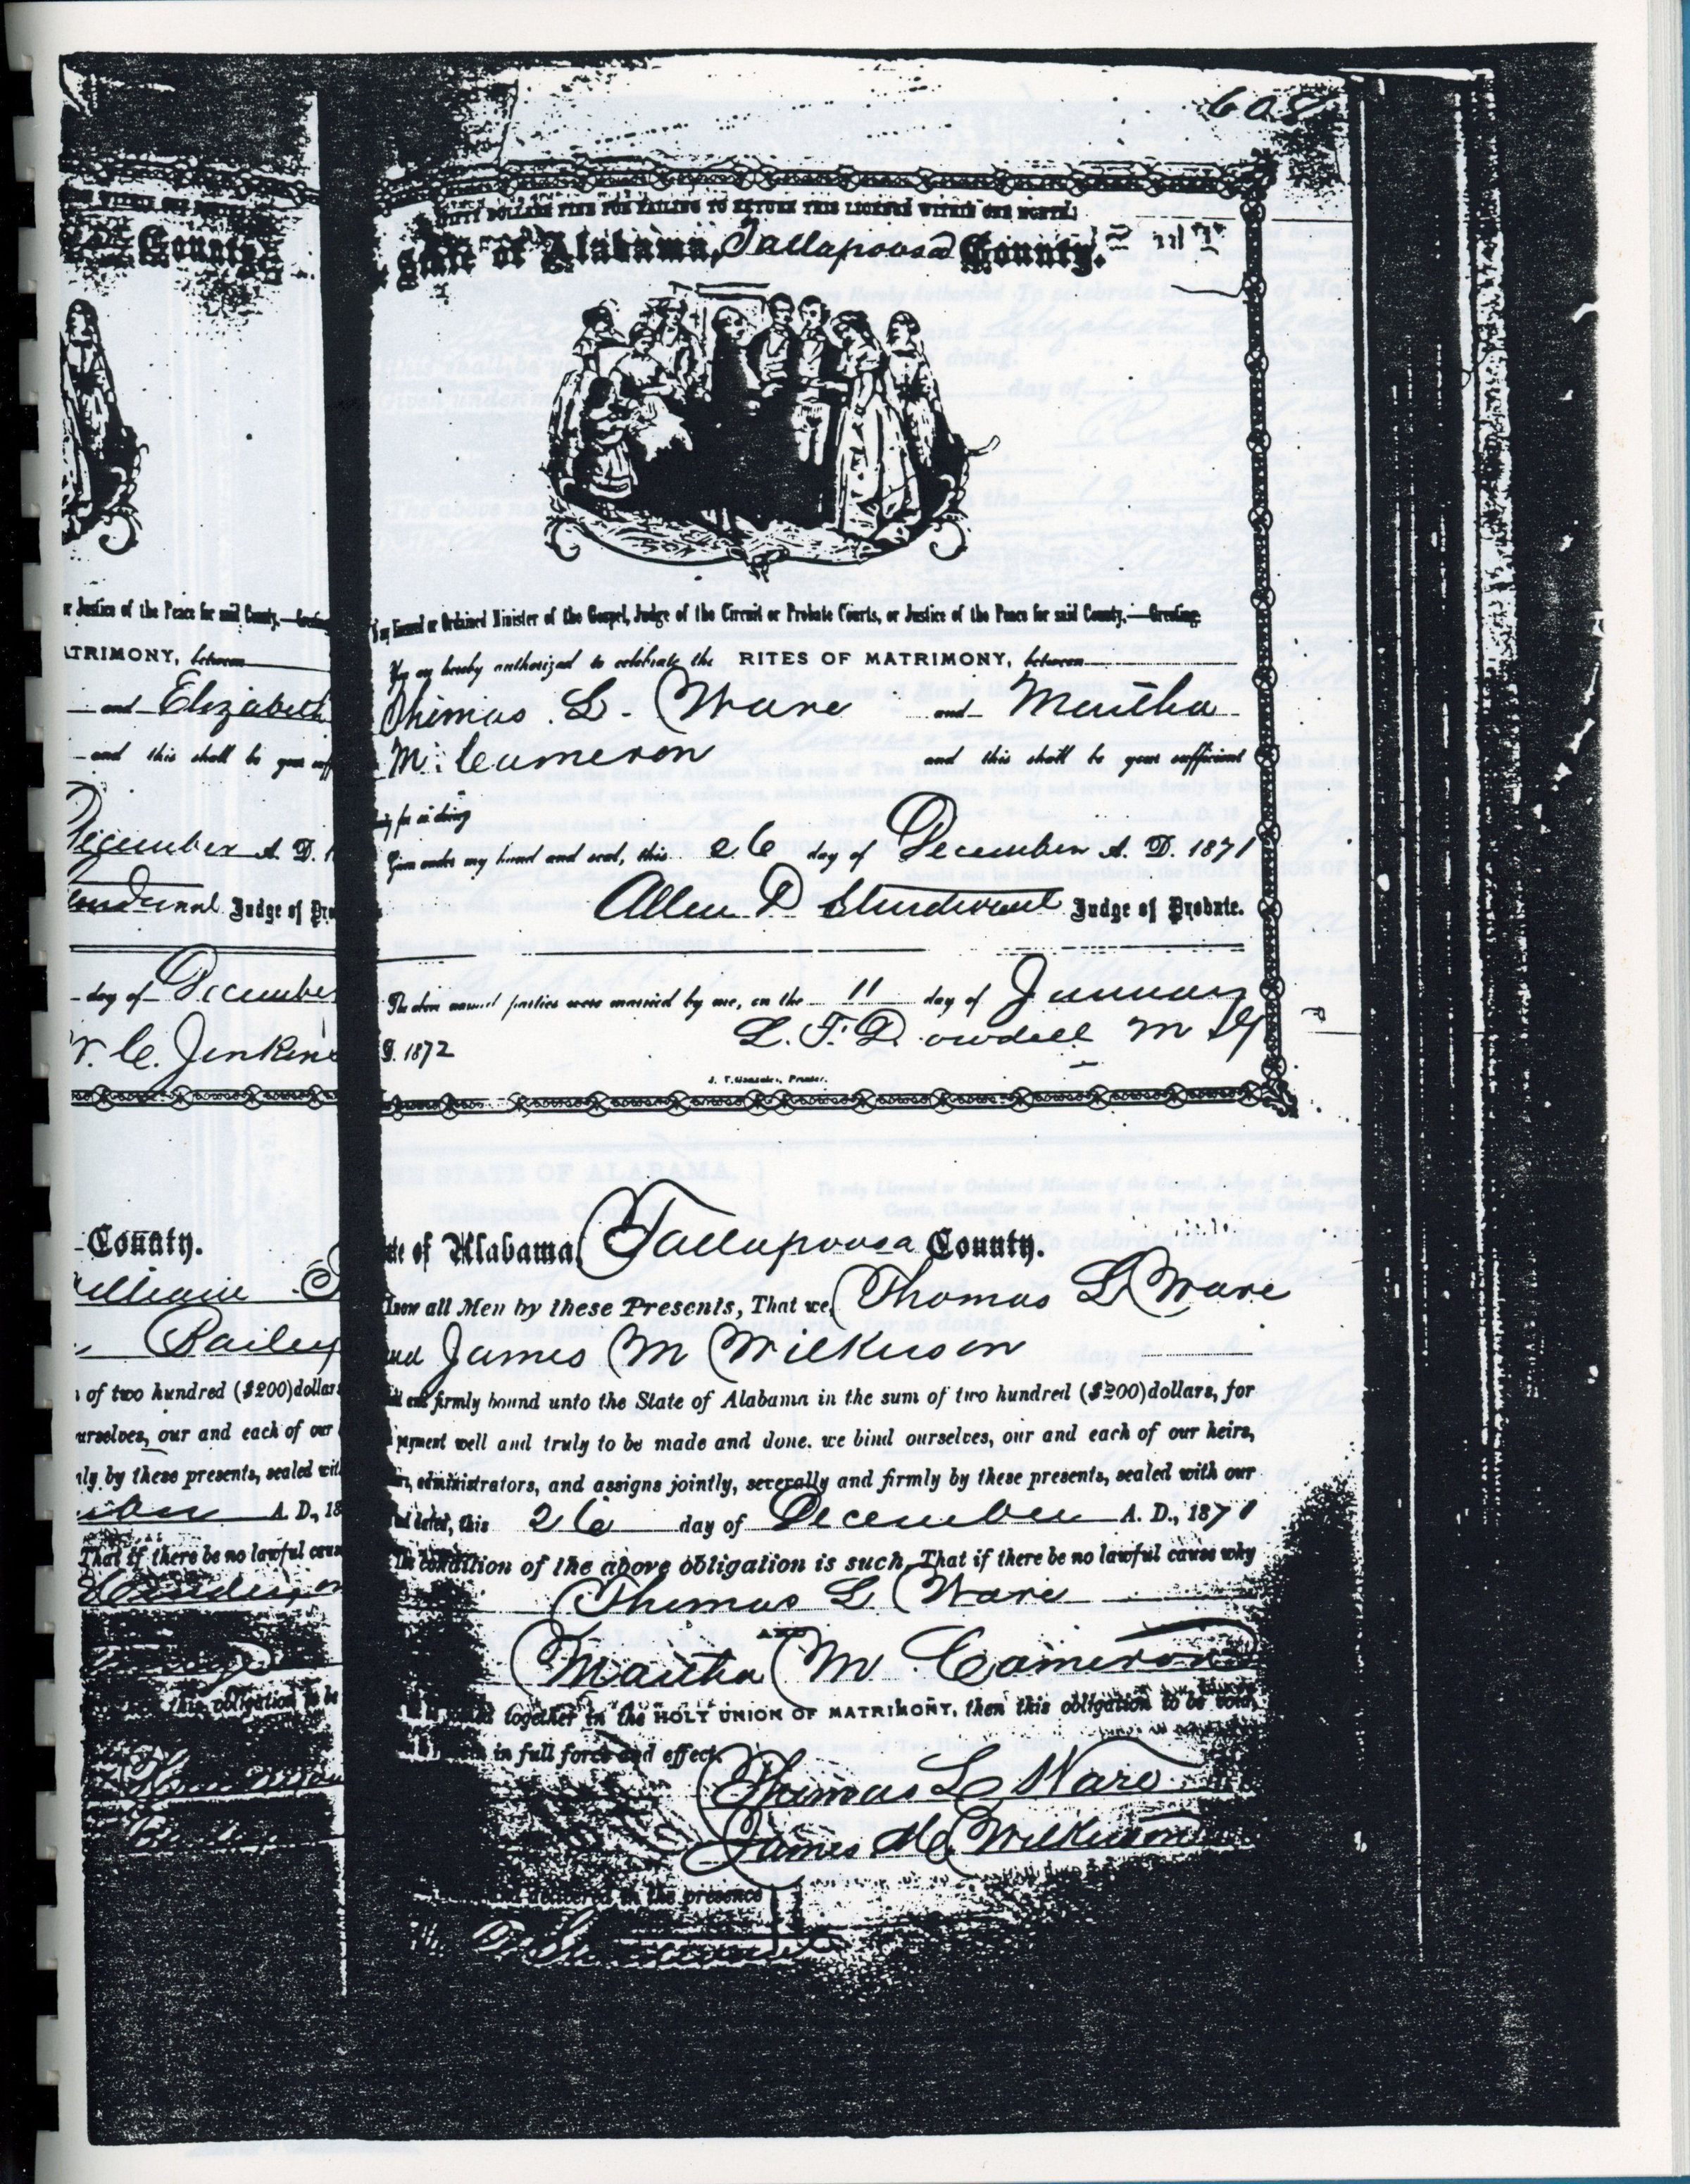 608
FIFTY DOLLARS FINE FOR FAILING TO RETURN THIS LICENSE WITHIN ONE MONTH.
State of Alabama, Tallapoosa County.
or Ordained Minister of the Gospel, Judge of the Circuit or Probate Courts, or Justice of the Peace for said County.—Greeting
You are hereby authorized to celebrate the RITES OF MATRIMONY, between
Thomas L. Ware and Martha
M. Cameron and this shall be your sufficient
for so doing
Given under my hand and seal, this 26 day of December A. D. 1871
Allen D Sturdivant Judge of Probate.
The above named parties were married by me, on the 11 day of January
D. 1872 L. F. Dowdell M G
J. T. Gonzales, Printer.
of Alabama, Tallapoosa County.
Know all Men by these Presents, That we, Thomas L Ware
and James M Wilkerson
firmly bound unto the State of Alabama in the sum of two hundred ($200) dollars, for
payment well and truly to be made and done, we bind ourselves, our and each of our heirs,
administrators, and assigns jointly, severally and firmly by these presents, sealed with our
and dated, this 26 day of December A. D., 1871
The condition of the above obligation is such, That if there be no lawful cause why
Thomas L Ware
AND
Martha M Cameron
together in the HOLY UNION OF MATRIMONY, then this obligation to be void,
in full force and effect.
Thomas L Ware
James M Wilkerson
and delivered in the presence
County
or Justice of the Peace for said County.—Greeting
MATRIMONY, between
and Elizabeth
and this shall be your
December A. D. 1
Judge of Pro
day of December
C. Jenkins
County.
Bailey
of two hundred ($200) dollars
ourselves, our and each of our
by these presents, sealed with
A. D., 18
That if there be no lawful cause
this obligation to be